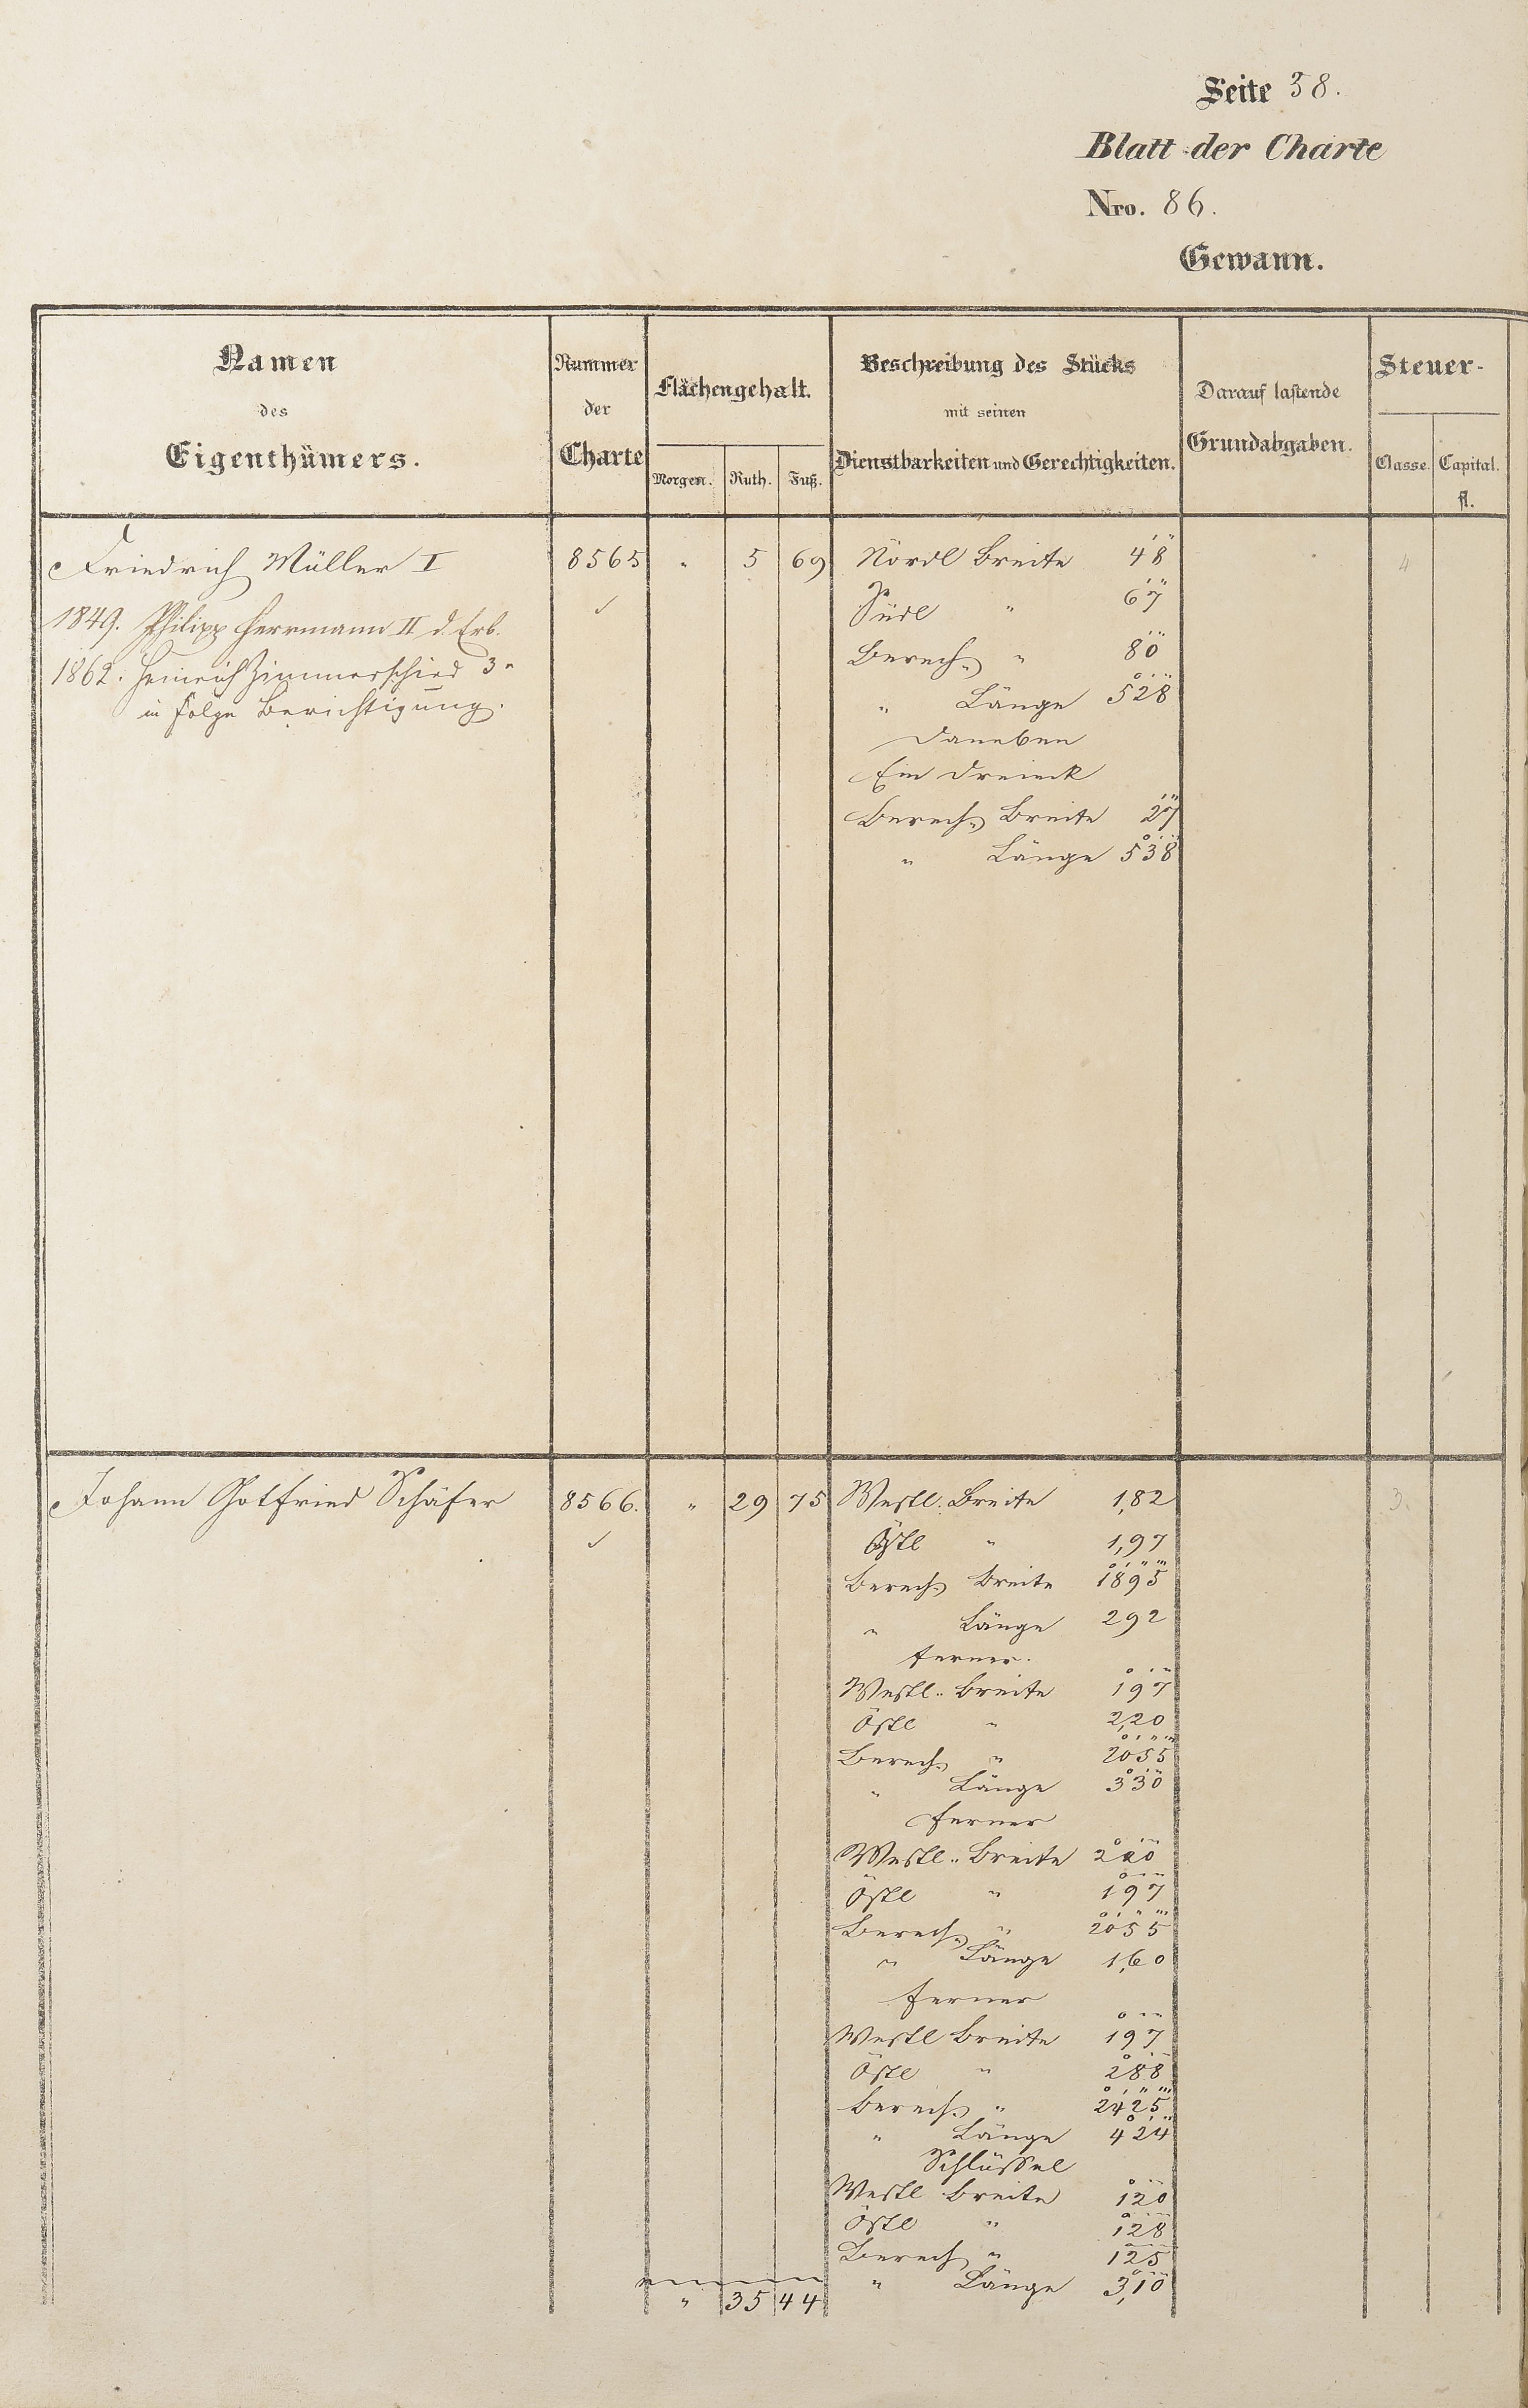 Seite 38.
Blatt der Charte
Nro. 86.
Gewann.
Namen
des
Eigenthümers.
Nummer
der
Charte
Flächengehalt.
Morgen. Ruth. Fuß.
Beschreibung des Stücks
mit seinen
Dienstbarkeiten und Gerechtigkeiten.
Darauf lastende
Grundabgaben.
Steuer-
Classe. Capital.
fl.
Friedrich Müller I 8565 " 5 69 Nördl Breite 48 4
1849. Philipp Herrmann II d. Erb. ✓ Südl " 67
1862. Heinrich Zimmerschied 3r Berech. " 80
in Folge Berichtigung. " Länge 528
Daneben
Ein Dreieck
Berech. Breite 27
" Länge 538
Johann Gotfried Schäfer 8566. " 29 75 Westl. Breite 1,82 3.
✓ Östl " 1,97
Berech. Breite 1895
" Länge 292
ferner.
Westl. Breite 197
Östl " 2,20
Berech. " 2055
" Länge 330
ferner
Westl. Breite 220
Östl " 197
Berech. " 2055
" Länge 1,60
ferner
Westl Breite 197
Östl " 288
Berech. " 2425
" Länge 424
Schlüssel
Westl Breite 120
Östl " 128
Berech. " 125
" Länge 3,10
" 35 44